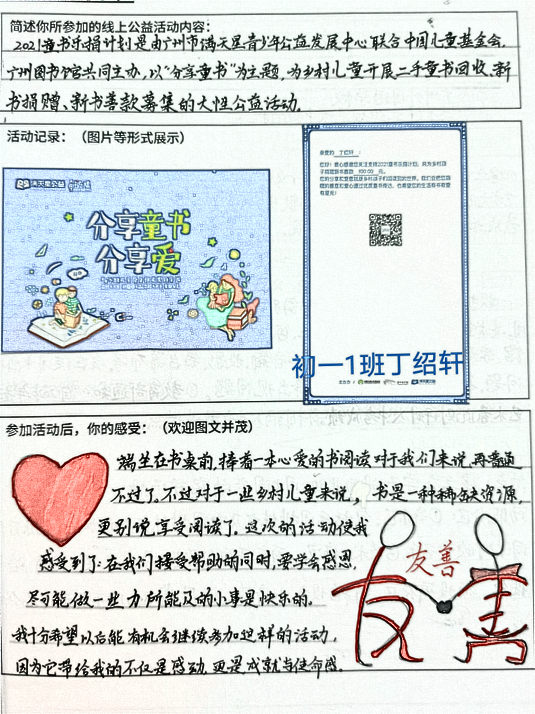 简述你所参加的线上公益活动内容：
2021童书乐捐计划是由广州市满天星青少年公益发展中心联合中国儿童基金会，
广州图书馆共同主办，以“分享童书”为主题，为乡村儿童开展二手童书回收、新
书捐赠、新书善款募集的大恒公益活动。
活动记录：（图片等形式展示）
满天星公益
分享童书
分享爱
尊敬的 丁绍轩：
100.00 元
初一1班丁绍轩
参加活动后，你的感受：（欢迎图文并茂）
端坐在书桌前，捧着一本心爱的书阅读对于我们来说，再普通
不过了，不过对于一些乡村儿童来说，书是一种稀缺资源，
更别说享受阅读了。这次的活动使我
感受到了：在我们接受帮助的同时，要学会感恩，
尽可能做一些力所能及的小事是快乐的。
我十分希望以后能有机会继续参加这样的活动，
因为它带给我的不仅是感动，更是成就与使命感。
友善
友善